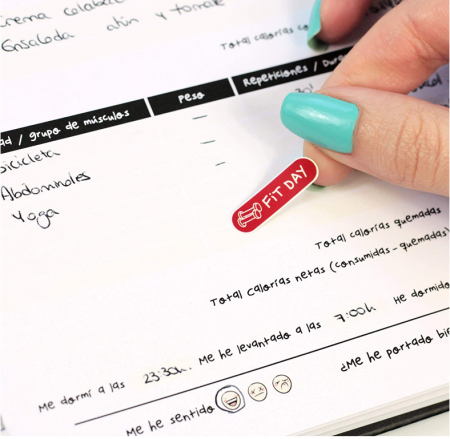 Crema calabac
Ensalada atún y tomate
Total calorías co
ad / grupo de músculos Peso Repeticiones / Dura
bicicleta —
Abdominales —
Yoga —
FIT DAY
Total calorías quemadas
Total calorías netas (consumidas - quemadas)
Me dormí a las 23:30h. Me he levantado a las 7:00h He dormido
Me he sentido ¿Me he portado bie